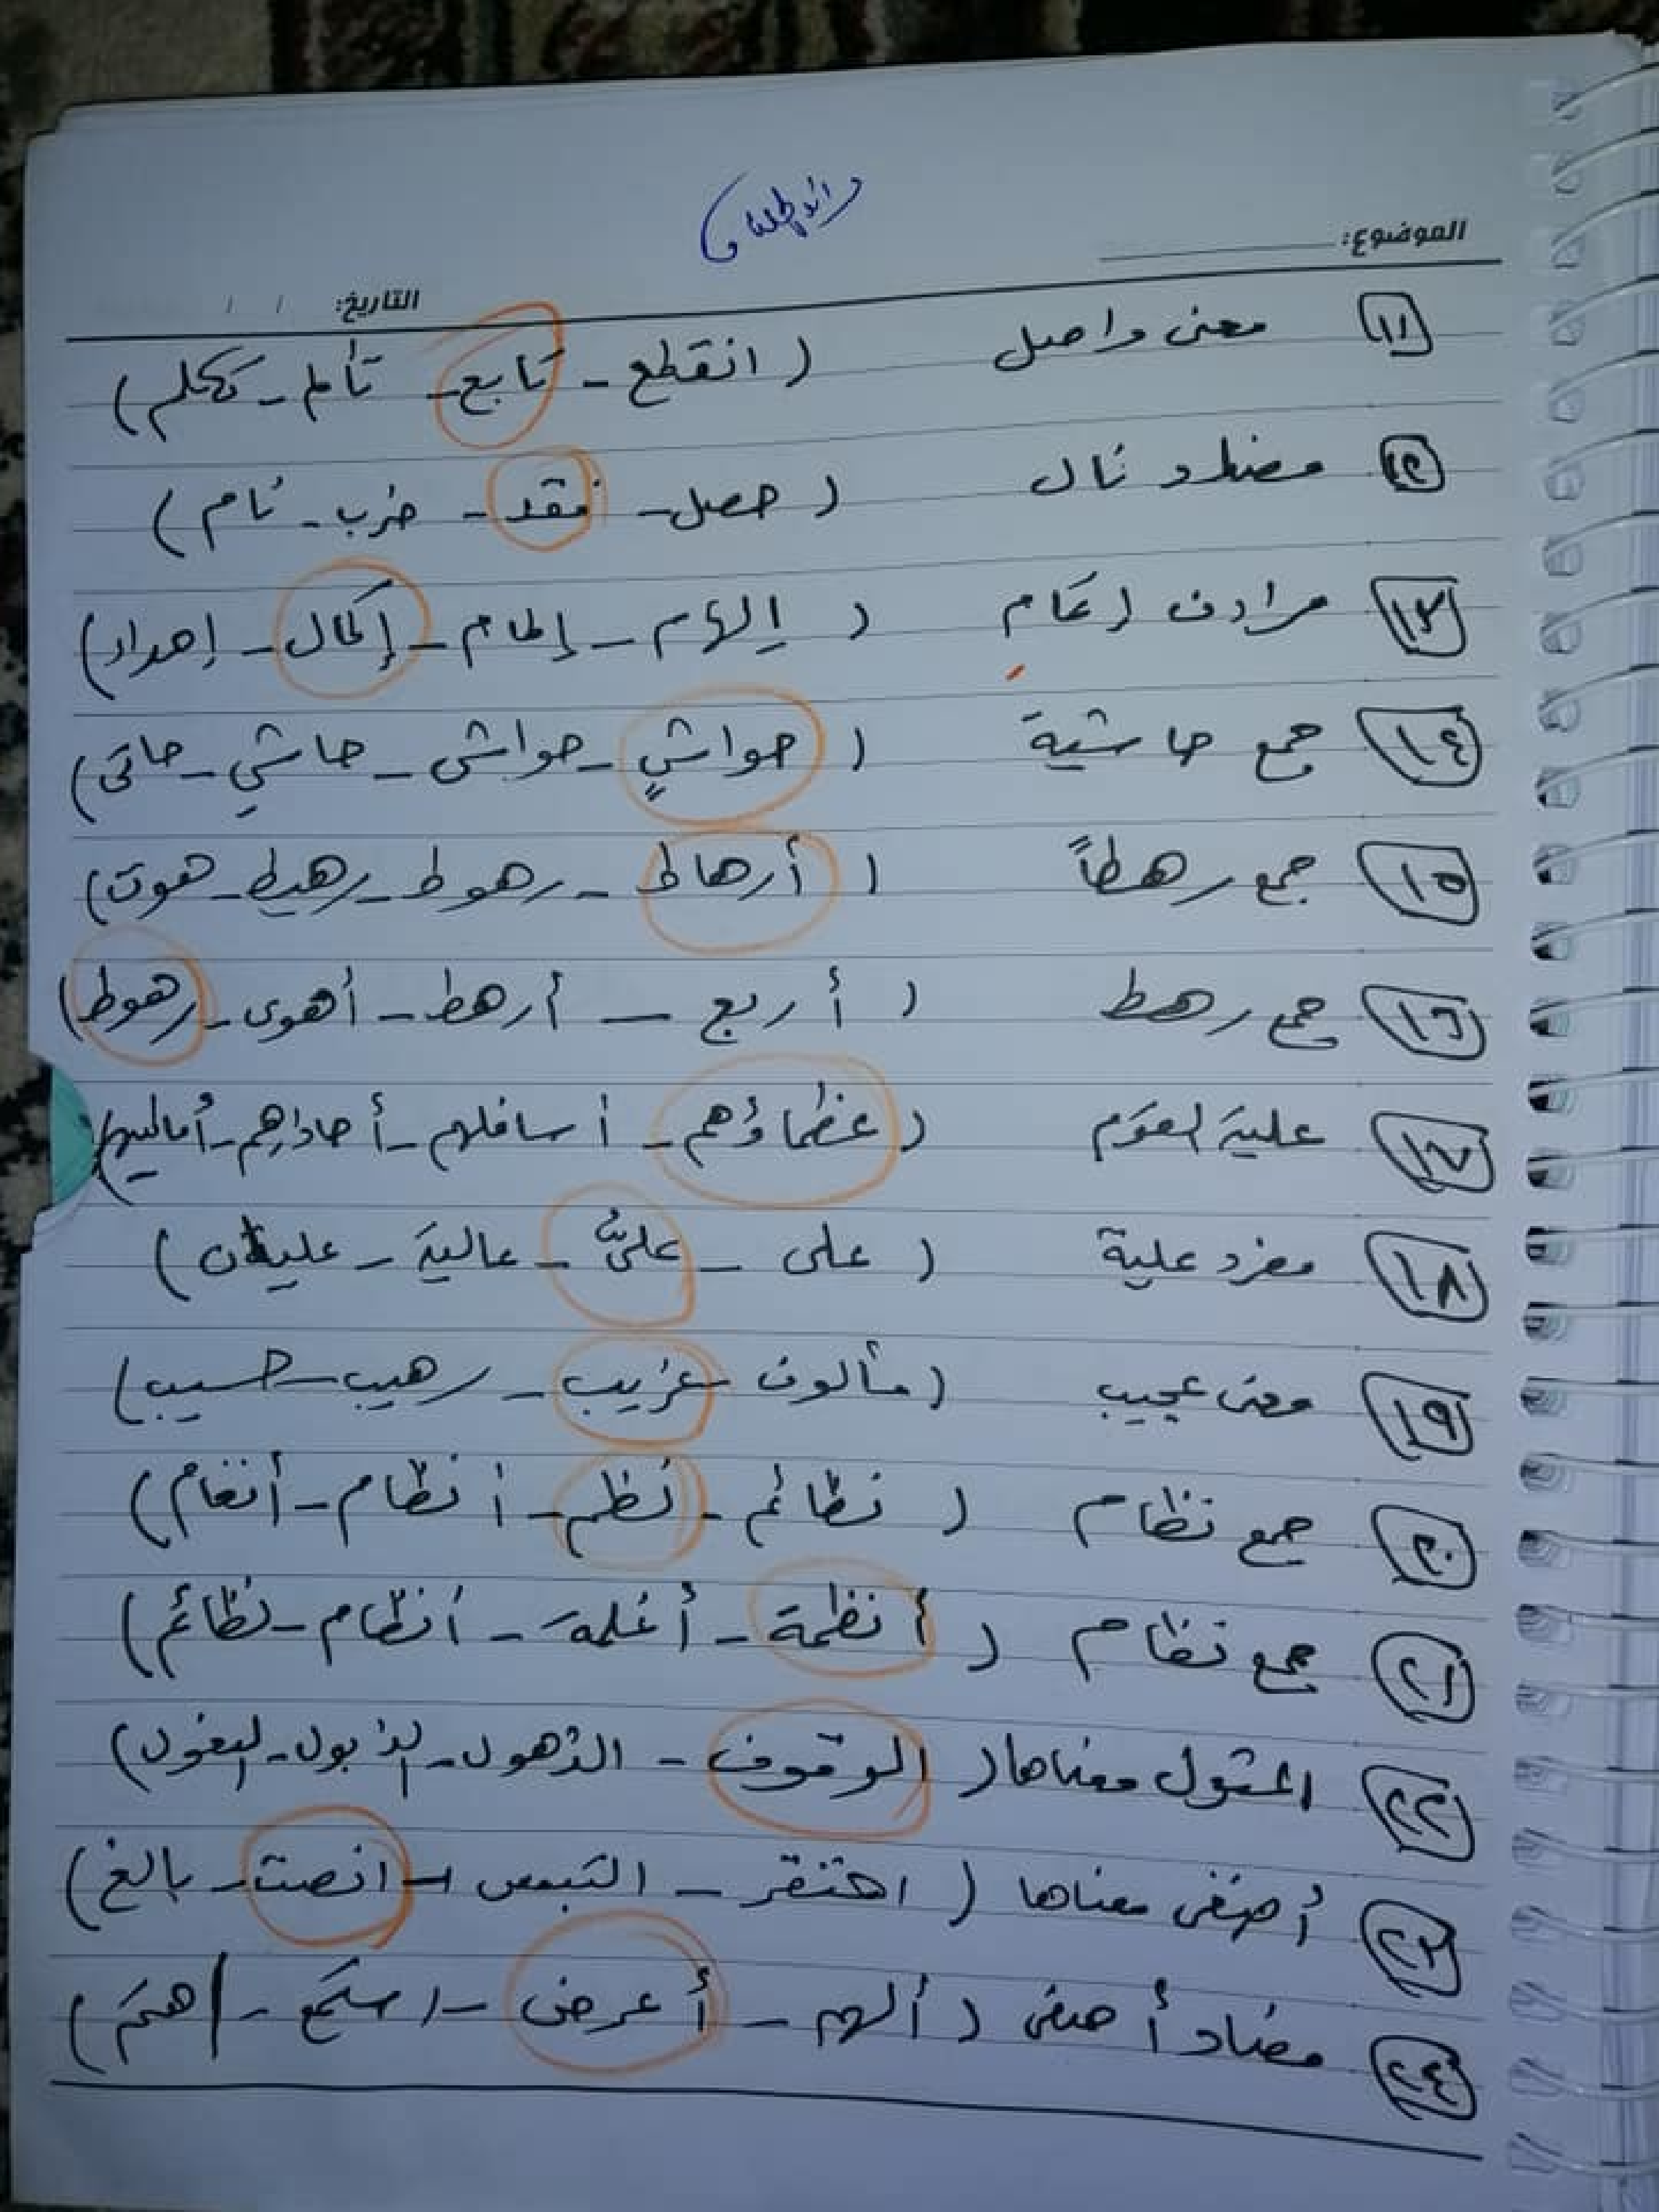 الموضوع:
التاريخ: / /
١١ معنى واصل ( انقطع - تابع - تألم - تكلم )
١٢ مضاد نال ( حصل - فقد - ضرب - نام )
١٣ مرادف إتمام ( إلهام - إلمام - إكمال - إهدار )
١٤ جمع حاشية ( حواشٍ - حواشى - حاشي - حاتى )
١٥ جمع رهطاً ( أرهاط - رهوط - رهيط - هوت )
١٦ جمع رهط ( أربع - أرهط - أهوى - رهوط )
١٧ علية القوم ( عظماؤهم - أسافلهم - - )
١٨ مفرد علية ( على - علىٌّ - عالية - عليان )
١٩ معنى عجيب ( مألوف - غريب - رهيب - حسيب )
٢٠ جمع نظام ( نظائم - نظم - أنظام - أنغام )
٢١ جمع نظام ( أنظمة - أغلمة - أنظام - نظائم )
٢٢ المثول معناها ( الوقوف - الذهول - الذبول - )
٢٣ أصغى معناها ( احتقر - التبس - انصت - بالغ )
٢٤ مضاد أصغى ( ألهم - أعرض - استمع - اهتم )